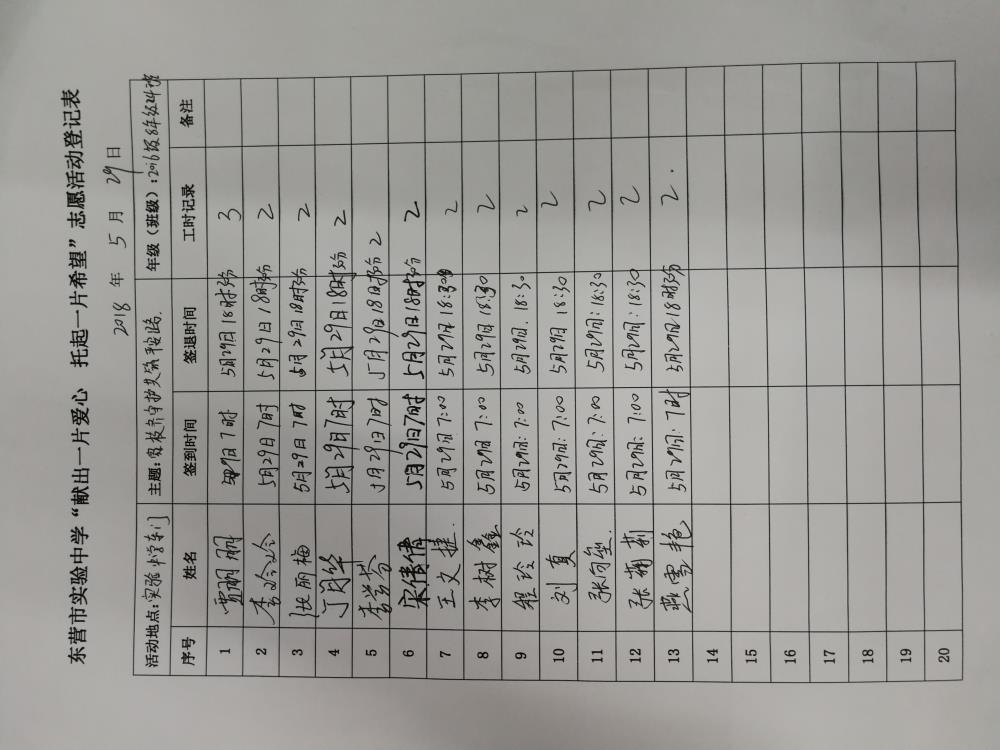 东营市实验中学“献出一片爱心 托起一片希望”志愿活动登记表
2018 年 5 月 29 日
活动地点：实验中学东门 主题：家校齐守护共筑平安路. 年级（班级）：2016级8年级24班
序号 姓名 签到时间 签退时间 工时记录 备注
1 贾丽丽 5月29日7时 5月29日18时30分 3
2 李玲玲 5月29日7时 5月29日18时30分 2
3 张丽梅 5月29日7时 5月29日18时30分 2
4 丁月华 5月29日7时 5月29日18时30分 2
5 李学芬 5月29日7时 5月29日18时30分 2
6 宋倩倩 5月29日7时 5月29日18时30分 2
7 王文捷. 5月29日7:00 5月29日18:30 2
8 李树鑫 5月29日7:00 5月29日18:30 2
9 程玲玲 5月29日:7:00 5月29日.18:30 2
10 刘真 5月29日:7:00 5月29日 18:30 2
11 5月29日:7:00 5月29日:18:30 2
12 张莉莉 5月29日:7:00 5月29日:18:30 2
13 燕雪艳 5月29日:7时 5月29日18时30分 2.
14
15
16
17
18
19
20